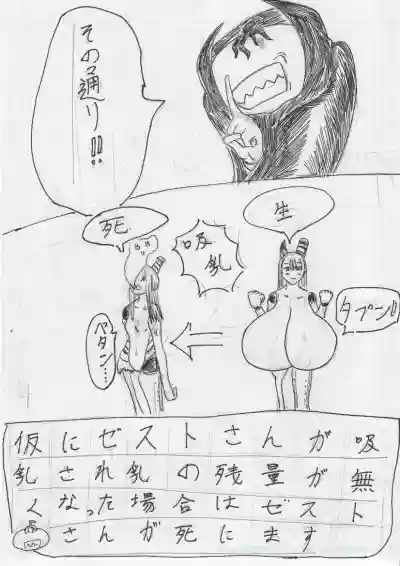 その通り!!
生
タプーン!!
吸乳
死
ペタン……
仮にゼストさんが吸
乳され乳の残量が無
くなった場合はゼスト
さんが死にます